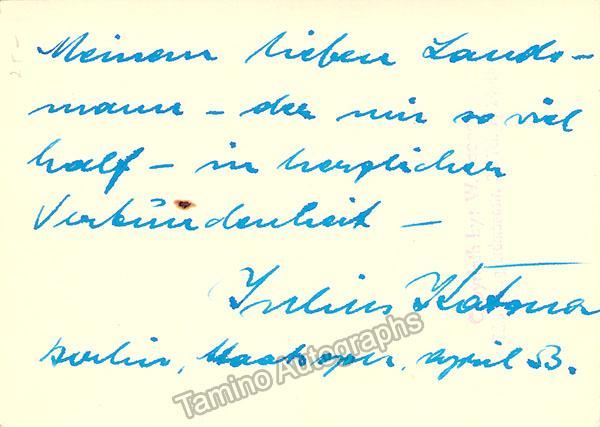 Meinem lieben Lands-
mann – der mir so viel
half – in herzlicher
Verbundenheit –
Julius Katona
Berlin, Staatsoper, April 53.
Tamino Autographs
25-